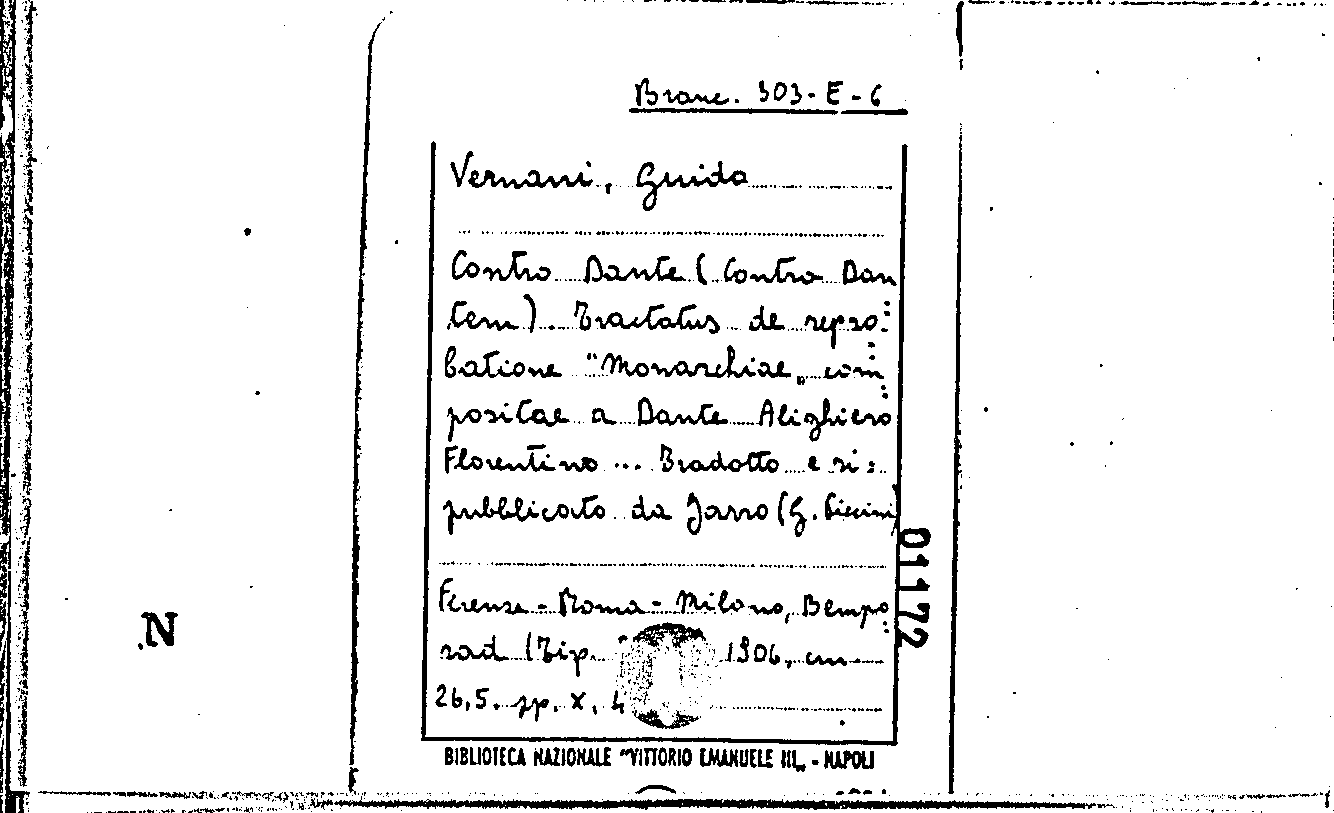 Branc. 303-E-6
Vernani, Guido
Contro Dante (Contra Dan
tem). Tractatus de repro:
batione "Monarchiae„ com
positae a Dante Alighiero
Florentino ... Tradotto e ri:
pubblicato da Jarro (G. Piccini)
Firenze - Roma - Milano, Bempo:
rad (Tip. 1906, cm
26,5. pp. X,
01172
N
BIBLIOTECA NAZIONALE "VITTORIO EMANUELE III„ - NAPOLI